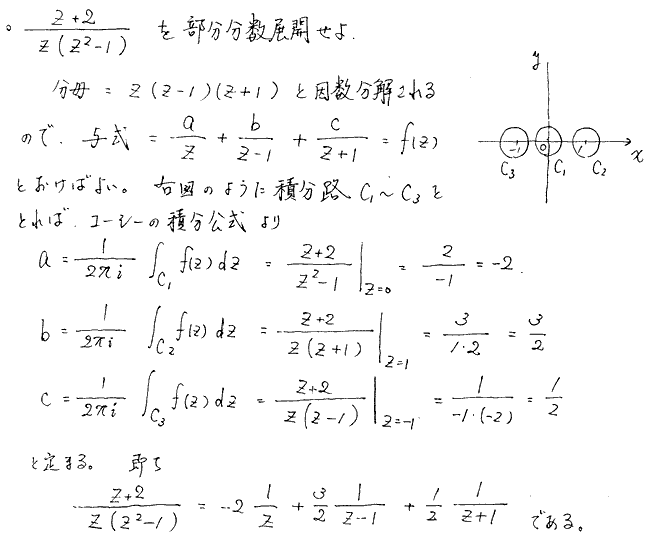 。 (z+2)/(z(z²-1)) を部分分数展開せよ.
分母 = z(z-1)(z+1) と因数分解される
ので. 与式 = a/z + b/(z-1) + c/(z+1) = f(z)
とおけばよい。 右図のように積分路 C₁~C₃ を
とれば. コーシーの積分公式より
y
x
-1 0 1
C₃ C₁ C₂
a = 1/(2πi) ∫_C₁ f(z)dz = (z+2)/(z²-1) |_z=0 = 2/(-1) = -2.
b = 1/(2πi) ∫_C₂ f(z)dz = (z+2)/(z(z+1)) |_z=1 = 3/(1・2) = 3/2
c = 1/(2πi) ∫_C₃ f(z)dz = (z+2)/(z(z-1)) |_z=-1 = 1/(-1・(-2)) = 1/2
と定まる。 即ち
(z+2)/(z(z²-1)) = -2 1/z + 3/2 1/(z-1) + 1/2 1/(z+1) である。